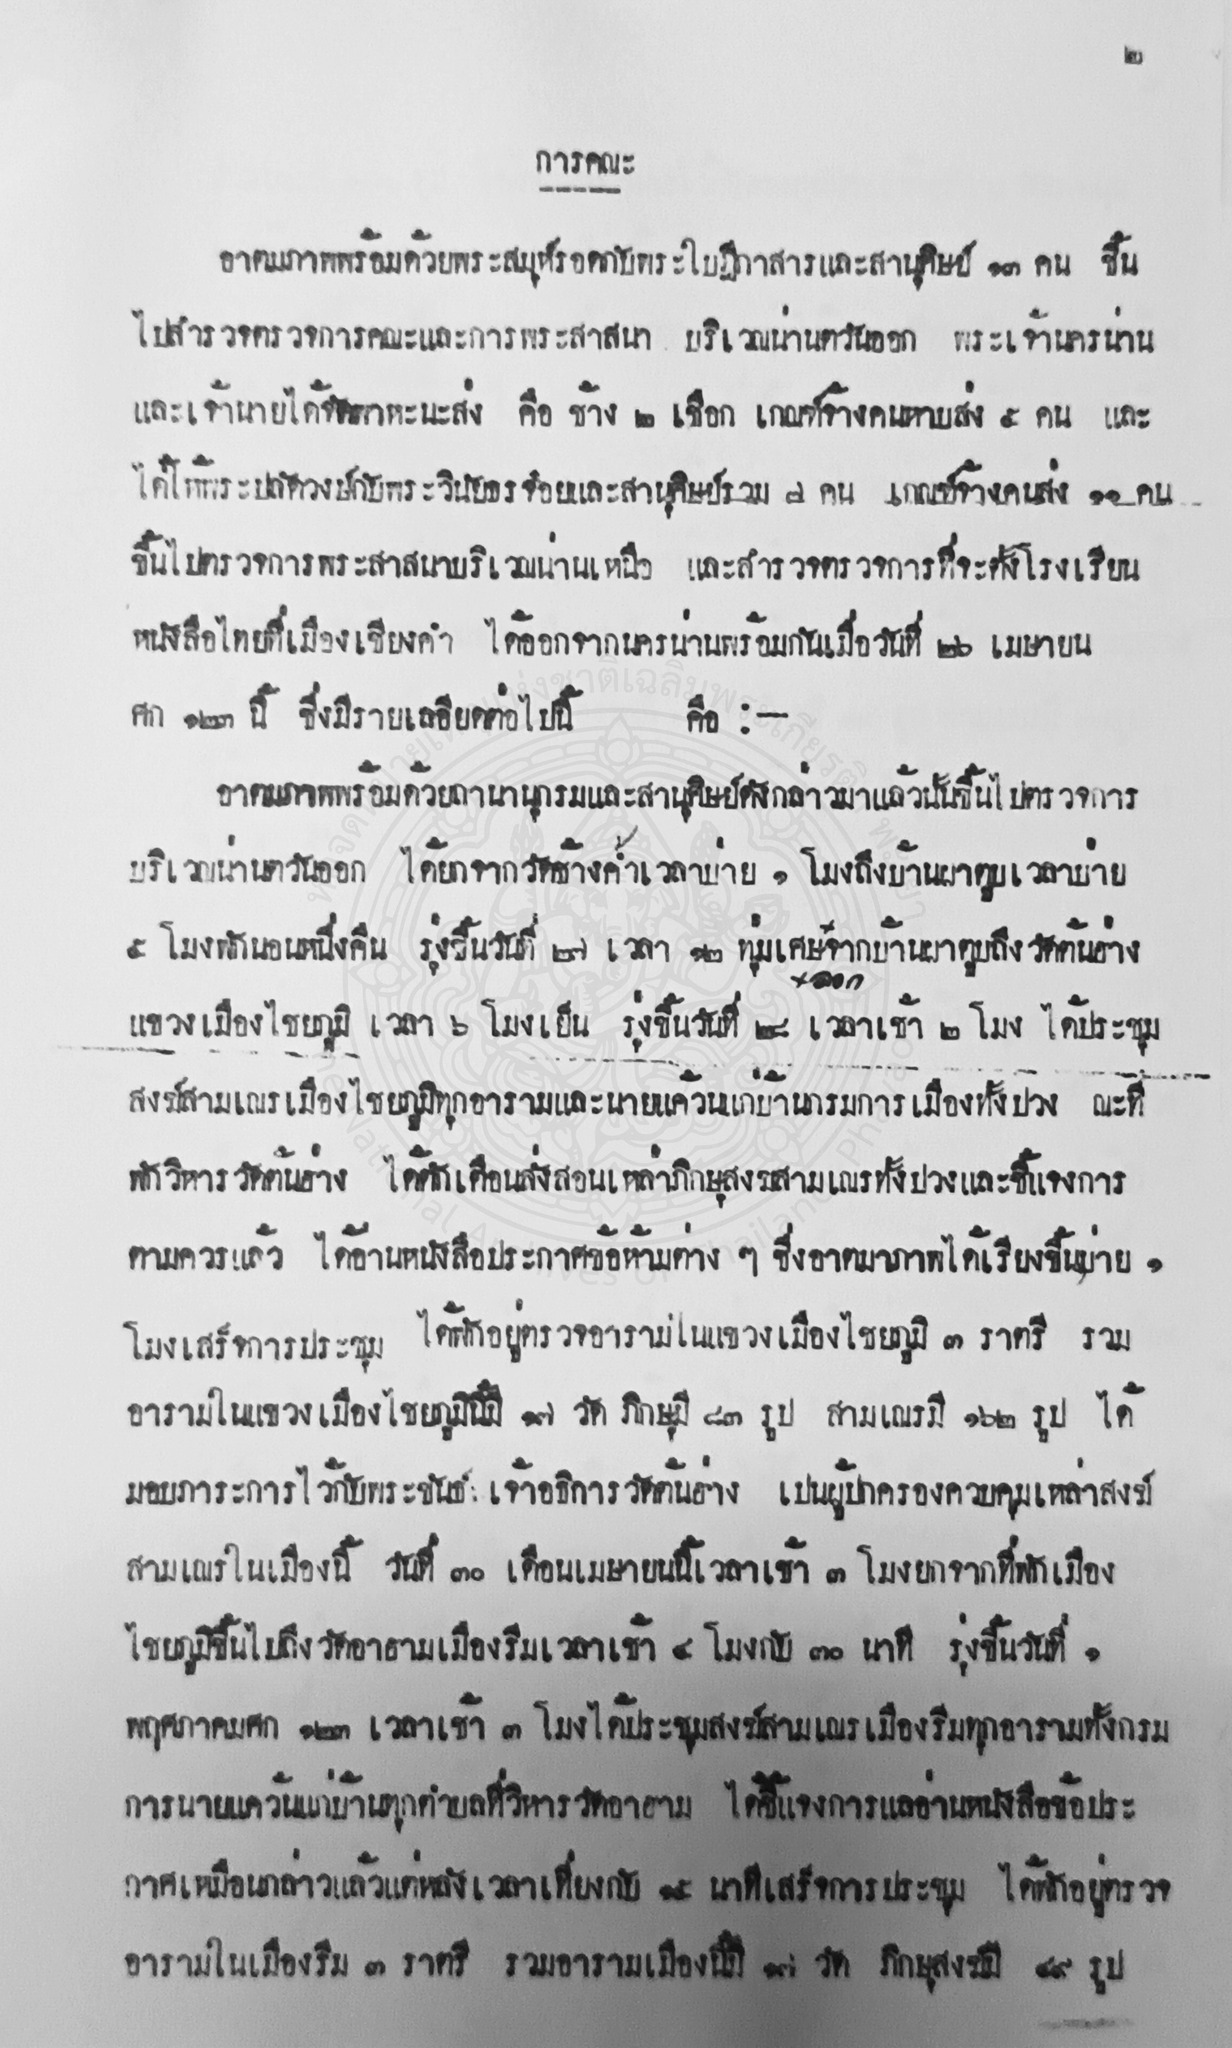 ๒
การคณะ
อาตมภาพพร้อมด้วยพระสมุห์รอดกับพระใบฎีกาสารและสานุศิษย์ ๑๓ คน ขึ้น
ไปสำรวจตรวจการคณะและการพระสาสนา บริเวณน่านตวันออก พระเจ้านครน่าน
และเจ้านายได้จัดพาหะนะส่ง คือ ช้าง ๒ เชือก เกณฑ์จ้างคนหาบส่ง ๕ คน และ
ได้ให้พระปลัดวงษ์กับพระวินัยธรช้อยและสานุศิษย์รวม ๘ คน เกณฑ์จ้างคนส่ง ๑๑ คน
ขึ้นไปตรวจการพระสาสนาบริเวณน่านเหนือ และสำรวจตรวจการที่จะตั้งโรงเรียน
หนังสือไทยที่เมืองเชียงคำ ได้ออกจากนครน่านพร้อมกันเมื่อวันที่ ๒๖ เมษายน
ศก ๑๒๓ นี้ ซึ่งมีรายเลอียดต่อไปนี้ คือ :—
อาตมภาพพร้อมด้วยถานานุกรมและสานุศิษย์ดังกล่าวมาแล้วนั้นขึ้นไปตรวจการ
บริเวณน่านตวันออก ได้ยกจากวัดช้างค้ำเวลาบ่าย ๑ โมงถึงบ้านผาตูบเวลาบ่าย
๕ โมงพักนอนหนึ่งคืน รุ่งขึ้นวันที่ ๒๗ เวลา ๑๒ ทุ่มเศษจากบ้านผาตูบถึงวัดต้นฮ่าง
+ออก
แขวงเมืองไชยภูมิ เวลา ๖ โมงเย็น รุ่งขึ้นวันที่ ๒๘ เวลาเช้า ๒ โมง ได้ประชุม
สงฆ์สามเณรเมืองไชยภูมิทุกอารามและนายแคว้นแก่บ้านกรมการเมืองทั้งปวง ณะที่
พักวิหารวัดต้นฮ่าง ได้ตักเตือนสั่งสอนเหล่าภิกษุสงฆสามเณรทั้งปวงและชี้แจงการ
ตามควรแล้ว ได้อ่านหนังสือประกาศข้อห้ามต่าง ๆ ซึ่งอาตมาภาพได้เรียงขึ้นบ่าย ๑
โมงเสร็จการประชุม ได้พักอยู่ตรวจอารามในแขวงเมืองไชยภูมิ ๓ ราตรี รวม
อารามในแขวงเมืองไชยภูมินี้มี ๑๗ วัด ภิกษุมี ๘๓ รูป สามเณรมี ๑๖๒ รูป ได้
มอบภาระการไว้กับพระขันธ์ เจ้าอธิการวัดต้นฮ่าง เปนผู้ปกครองควบคุมเหล่าสงฆ์
สามเณรในเมืองนี้ วันที่ ๓๐ เดือนเมษายนนี้เวลาเช้า ๓ โมงยกจากที่พักเมือง
ไชยภูมิขึ้นไปถึงวัดอาฮามเมืองริมเวลาเช้า ๔ โมงกับ ๓๐ นาที รุ่งขึ้นวันที่ ๑
พฤศภาคมศก ๑๒๓ เวลาเช้า ๓ โมงได้ประชุมสงฆ์สามเณรเมืองริมทุกอารามทั้งกรม
การนายแคว้นแก่บ้านทุกตำบลที่วิหารวัดอาฮาม ได้ชี้แจงการแลอ่านหนังสือข้อประ
กาศเหมือนกล่าวแล้วแต่หลังเวลาเที่ยงกับ ๑๕ นาทีเสร็จการประชุม ได้พักอยู่ตรวจ
อารามในเมืองริม ๓ ราตรี รวมอารามเมืองนี้มี ๑๗ วัด ภิกษุสงฆ์มี ๔๙ รูป